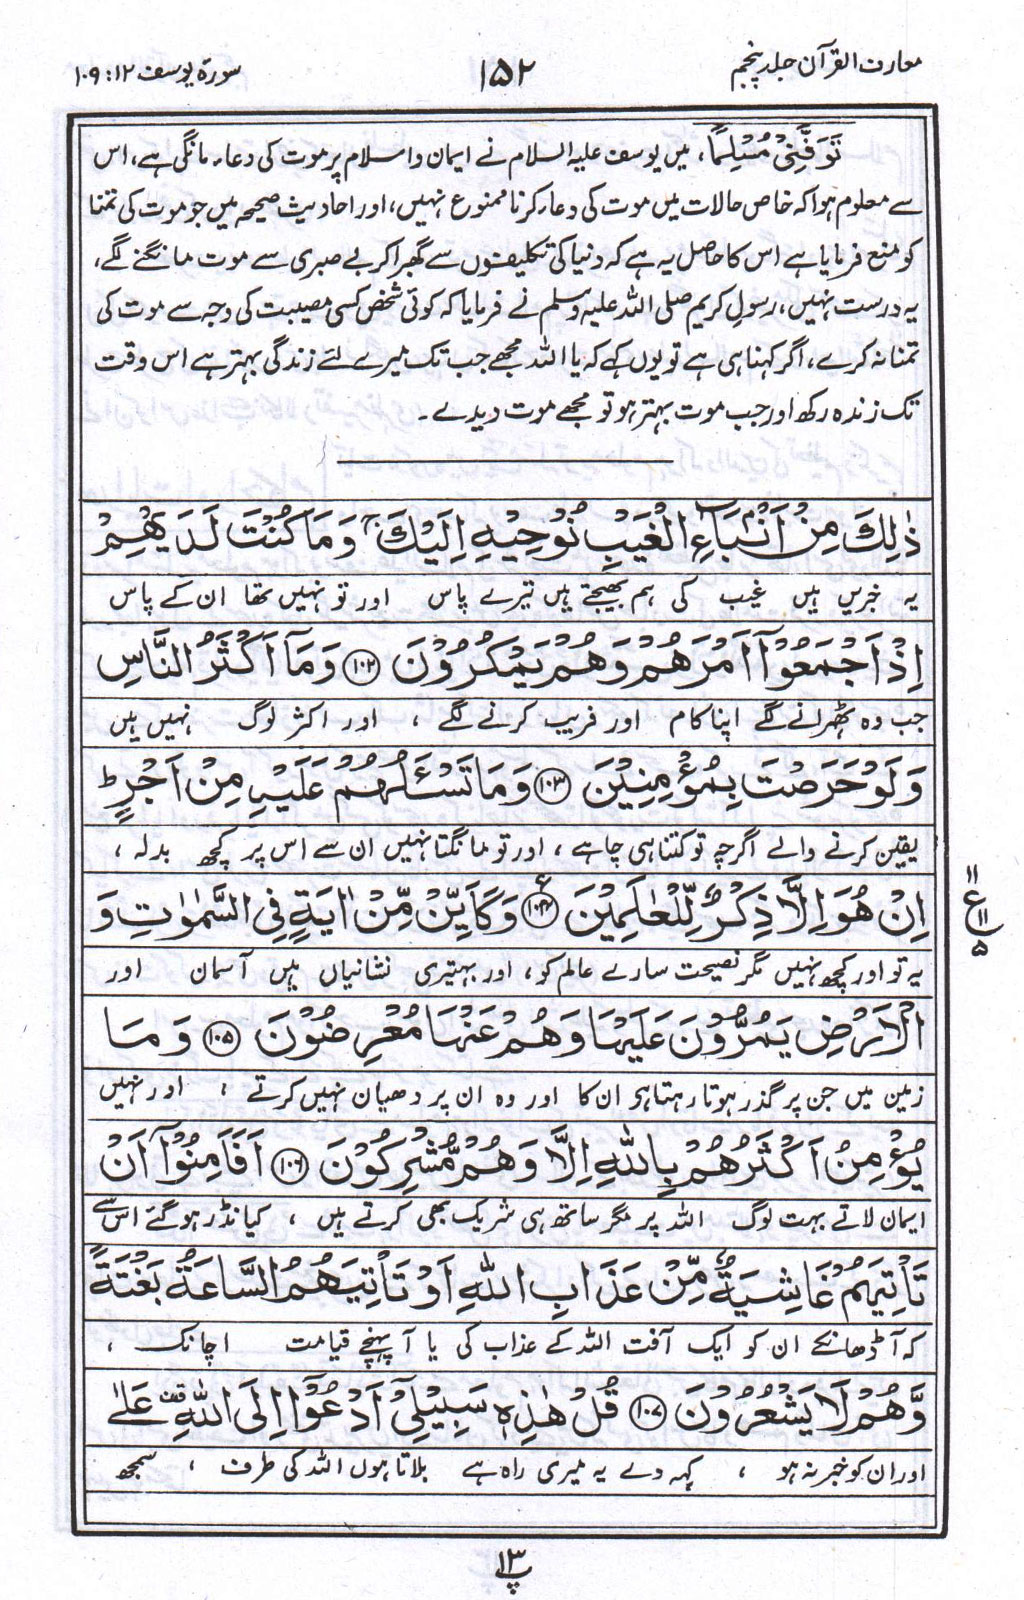 معارف القرآن جلد پنجم
۱۵۲
سورۃ یوسف ۱۲ : ۱۰۹
تَوَفَّنِیْ مُسْلِمًا، میں یوسف علیہ السلام نے ایمان و اسلام پر موت کی دعاء مانگی ہے، اس
سے معلوم ہوا کہ خاص حالات میں موت کی دعاء کرنا ممنوع نہیں، اور احادیث صحیحہ میں جو موت کی تمنا
کو منع فرمایا ہے اس کا حاصل یہ ہے کہ دنیا کی تکلیفوں سے گھبرا کر بے صبری سے موت مانگنے لگے،
یہ درست نہیں، رسول کریم صلی اللہ علیہ وسلم نے فرمایا کہ کوئی شخص کسی مصیبت کی وجہ سے موت کی
تمنا نہ کرے، اگر کہنا ہی ہے تو یوں کہے کہ یا اللہ مجھے جب تک میرے لئے زندگی بہتر ہے اس وقت
تک زندہ رکھ اور جب موت بہتر ہو تو مجھے موت دیدے۔
ذٰلِكَ مِنْ اَنْۢبَآءِ الْغَیْبِ نُوْحِیْهِ اِلَیْكَ ۚ وَمَا كُنْتَ لَدَیْهِمْ
یہ خبریں ہیں غیب کی ہم بھیجتے ہیں تیرے پاس اور تو نہیں تھا ان کے پاس
اِذْ اَجْمَعُوْٓا اَمْرَهُمْ وَهُمْ یَمْكُرُوْنَ ﴿۱۰۲﴾ وَمَآ اَكْثَرُ النَّاسِ
جب وہ ٹھہرانے لگے اپنا کام اور فریب کرنے لگے ، اور اکثر لوگ نہیں ہیں
وَلَوْ حَرَصْتَ بِمُؤْمِنِیْنَ ﴿۱۰۳﴾ وَمَا تَسْـَٔلُهُمْ عَلَیْهِ مِنْ اَجْرٍ ؕ
یقین کرنے والے اگرچہ تو کتنا ہی چاہے ، اور تو مانگتا نہیں ان سے اس پر کچھ بدلہ ،
اِنْ هُوَ اِلَّا ذِكْرٌ لِّلْعٰلَمِیْنَ ﴿۱۰۴﴾ ع وَكَاَیِّنْ مِّنْ اٰیَةٍ فِی السَّمٰوٰتِ وَ
۱۱
ع ۱۱
۵
یہ تو اور کچھ نہیں مگر نصیحت سارے عالم کو ، اور بہتیری نشانیاں ہیں آسمان اور
الْاَرْضِ یَمُرُّوْنَ عَلَیْهَا وَهُمْ عَنْهَا مُعْرِضُوْنَ ﴿۱۰۵﴾ وَمَا
زمین میں جن پر گذر ہوتا رہتا ہی ان کا اور وہ ان پر دھیان نہیں کرتے ، اور نہیں
یُؤْمِنُ اَكْثَرُهُمْ بِاللّٰهِ اِلَّا وَهُمْ مُّشْرِكُوْنَ ﴿۱۰۶﴾ اَفَاَمِنُوْٓا اَنْ
ایمان لاتے بہت لوگ اللہ پر مگر ساتھ ہی شریک بھی کرتے ہیں ، کیا نڈر ہو گئے اس سے
تَاْتِیَهُمْ غَاشِیَةٌ مِّنْ عَذَابِ اللّٰهِ اَوْ تَاْتِیَهُمُ السَّاعَةُ بَغْتَةً
کہ آ ڈھانکے ان کو ایک آفت اللہ کے عذاب کی یا آ پہنچے قیامت اچانک ،
وَّهُمْ لَا یَشْعُرُوْنَ ﴿۱۰۷﴾ قُلْ هٰذِهٖ سَبِیْلِیْٓ اَدْعُوْٓا اِلَی اللّٰهِ عَلٰی
اور ان کو خبر نہ ہو ، کہہ دے یہ میری راہ ہے بلاتا ہوں اللہ کی طرف ، سمجھ
پ ۱۳